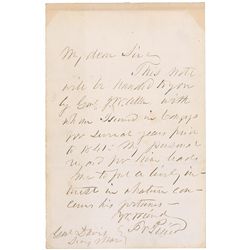 My dear Sir
This note
will be handed to you
by Col. J. W. Allen with
whom I served in Congress
for several years prior
to 1841. My personal
regard for him leads
me to feel a lively in-
terest in whatever con-
cerns his fortunes -
Yr friend
Genl Davis